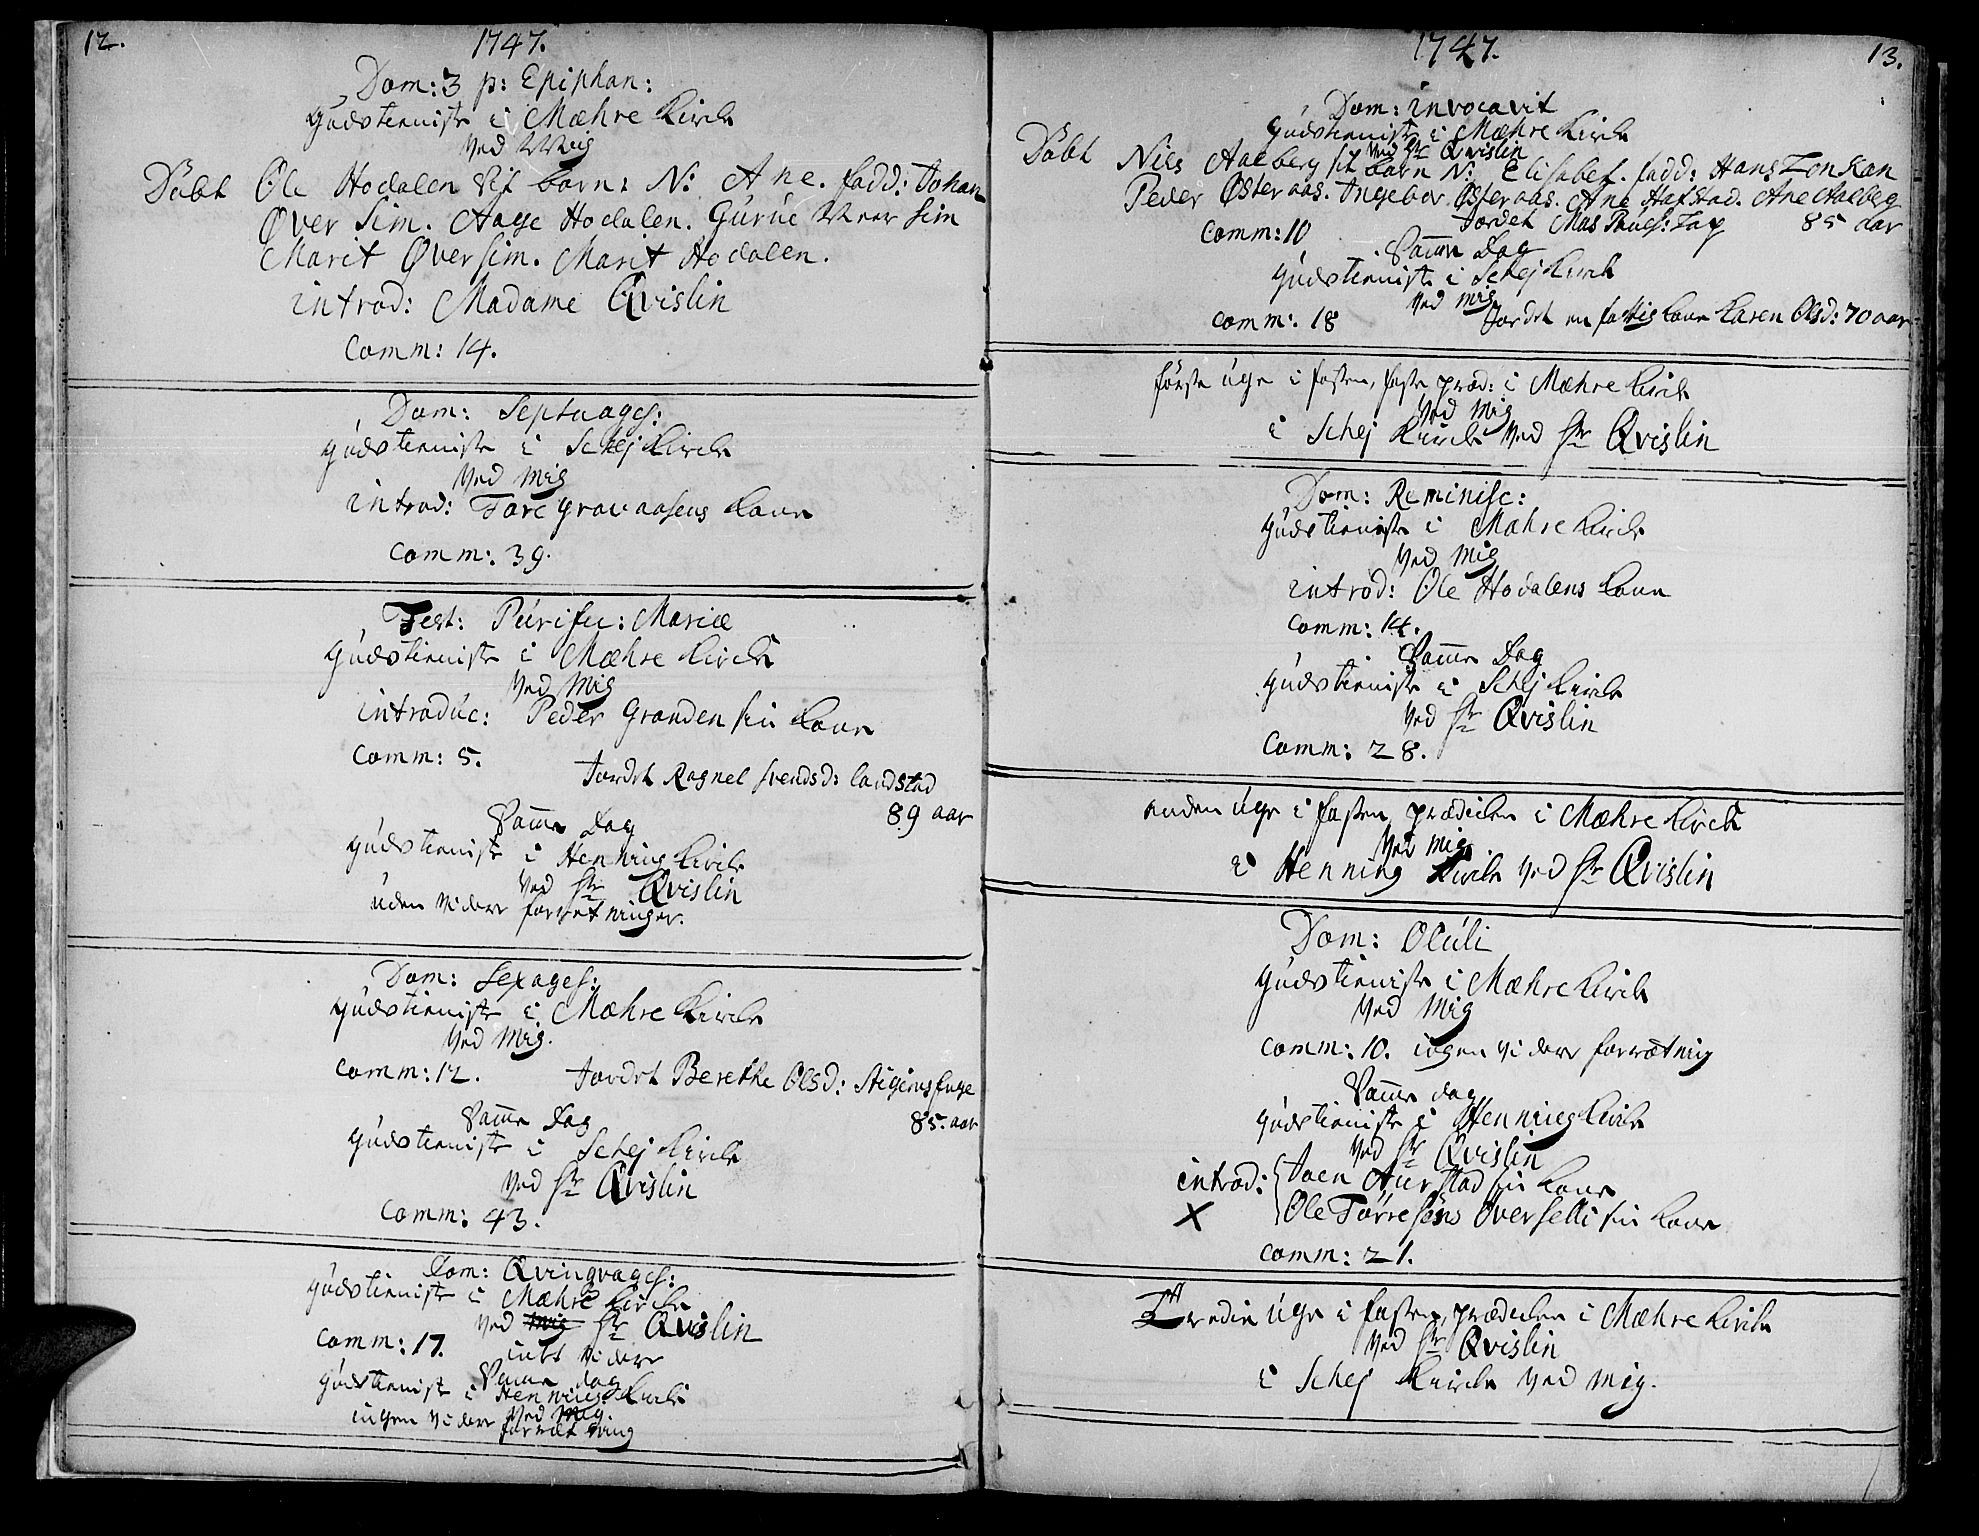 12.
1747.
Dom: 3 p: Epiphan:
Gudstieniste i Mæhre Kirche
Ved Mig
Døbt Ole Hodalen Sit barn: N: Ane. fadd: Johan
Øver Sim. Aage Hodalen. Gurue Neer Sim
Marit Øver sim. Marit Hodalen.
introd: Madame Qvislin
Comm: 14.
Dom: Septuages:
Gudstieniste i Schej Kirche
Ved Mig
introd: Tore Gravaasens Kone
Comm: 39.
Fest: Purific: Mariæ
Gudstieniste i Mæhre Kirche
Ved Mig
introduc: Peder Granden sin Kone
Comm: 5.
Jordet Ragnel Svendsd: landstad
89 aar
Samme Dag
Gudstieniste i Henning Kirche
Ved Hr Qvislin
uden videre forretninger.
Dom: Sexages:
Gudstieniste i Mæhre Kirche
Ved Mig.
Comm: 12.
Jordet Berethe Olsd:
85. aar
Samme Dag
Gudstieniste i Schej Kirche
Ved Hr Qvislin
Comm: 43.
Dom: Qvinqvages:
Gudstieniste i Mæhre Kirche
Ved mig Hr Qvislin
Comm: 17.
intet videre
Samme dag
Gudstienist i Henning Kirche
Ved Mig.
ingen videre forretning
1747.
13.
Dom: invocavit
Gudstieniste i Mæhre Kirche
Ved Hr Qvislin
Døbt Niels Aalberg sit barn N: Elisabet. fadd: Hans Zonkan
Peder Østeraas. Ingebor Østeraas. Ane Hafstad. Ane Aalberg
Comm: 10
Jordet 85 aar
Samme Dag
Gudstieniste i Schej Kirche
Ved Mig
Comm: 18
Jordet en fattig Kone Karen Olsd: 70 aar
første uge i fasten, faste præd: i Mæhre Kirche
Ved Mig
i Schej Kirche Ved Hr Qvislin
Dom: Reminisc:
Gudstieniste i Mæhre Kirche
Ved Mig
introd: Ole Hodalens Kone
Comm: 14.
Samme Dag
Gudstieniste i Schej Kirche
Ved Hr Qvislin
Comm: 28.
anden uge i fasten prædichen i Mæhre Kirche
Ved Mig
i Henning Kirche Ved Hr Qvislin
Dom: Oculi
Gudstieniste i Mæhre Kirche
Ved Mig
Comm: 10. ingen videre forrætning
Samme dag
Gudstieniste i Henning Kirche
Ved Hr Qvislin
introd: Joen Aurstad sin Kone
X Ole Tørresøns Overselli sin Kone
Comm: 21.
Tredie uge i fasten, prædichen i Mæhre Kirche
Ved Hr Qvislin
i Schej Kirche Ved Mig.